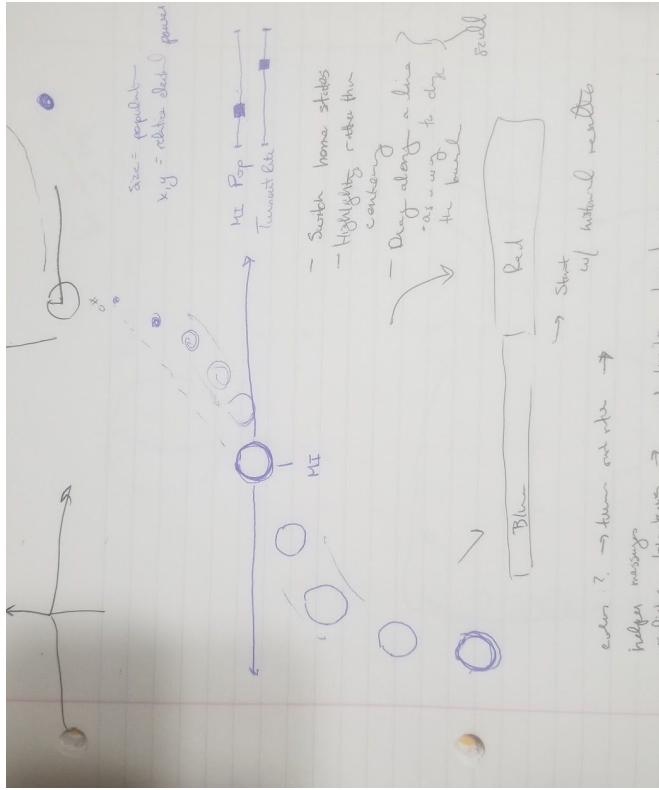 Size = population
x, y = relative elect power
MI Pop
Turnout Rate
MI
- Switch home states
- Highlighting rather than
centering
- Drag along a line
as a way to
the
Blue
Red
→ Start
w/ historical results
color ? → turn out rate →
helper messages